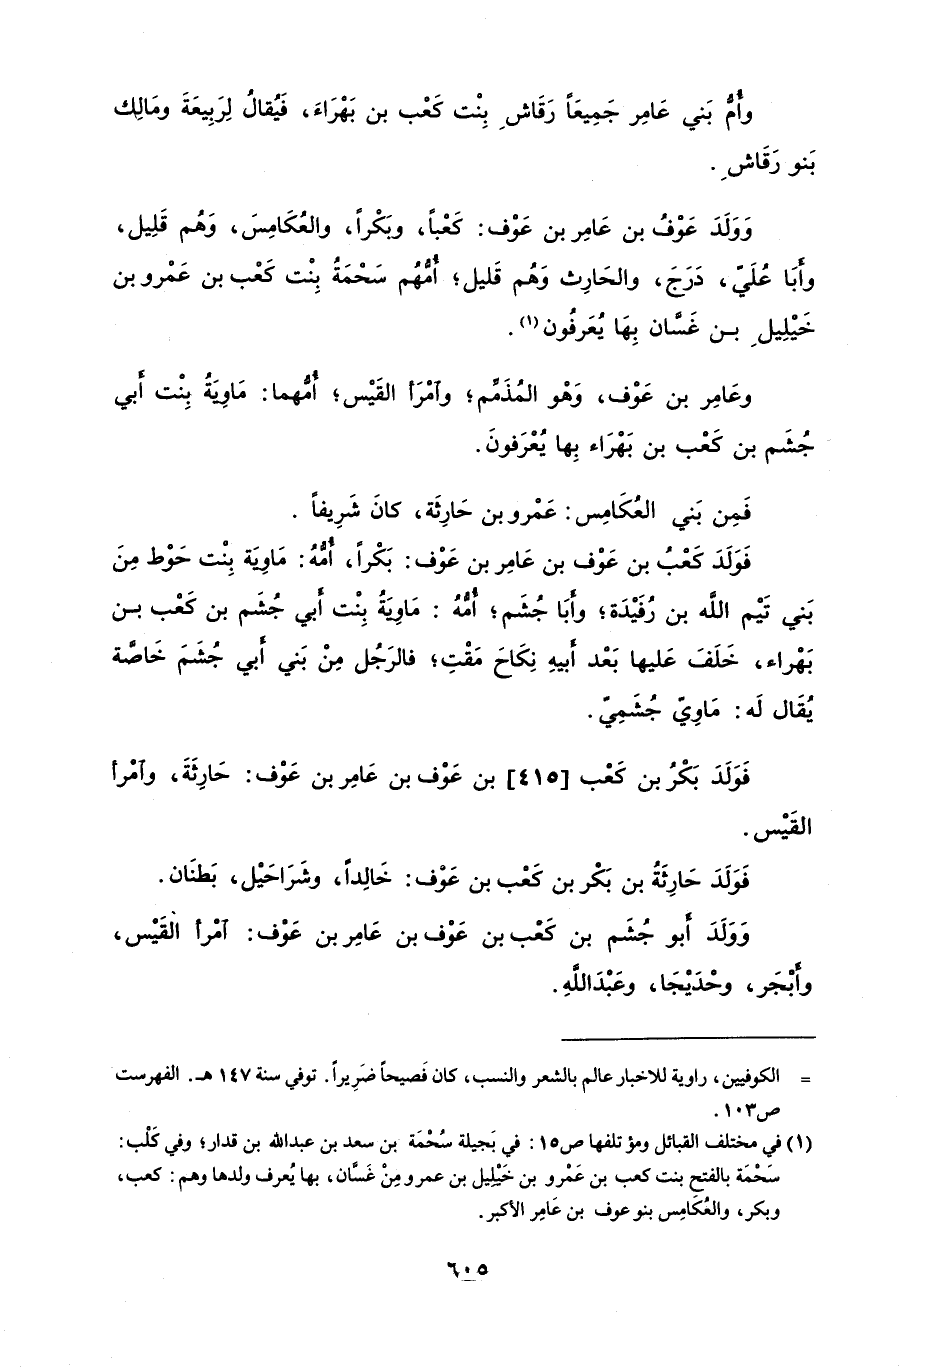 وأُمُّ بَني عَامِر جَمِيعَاً رَقَاشِ بِنْت كَعْب بن بَهْرَاءَ، فَيُقالُ لِرَبِيعَةَ ومَالِك
بَنو رَقَاشِ.
وَوَلَدَ عَوْفُ بن عَامِر بن عَوْف: كَعْباً، وبَكْراً، والعُكَامِسَ، وَهُم قَلِيل،
وأَبَا عُلَيّ، دَرَجَ، والحَارِث وَهُم قَلِيل؛ أُمُّهُم سَحْمَةُ بِنْت كَعْب بن عَمْرو بن
خَيْلِيلِ بـن غَسَّان بِهَا يُعَرفُون(١).
وعَامِر بن عَوْف، وَهْو المُذَمِّم؛ وآمْرَأ القَيْس؛ أُمُّهما: مَاوِيَةُ بِنْت أَبي
جُشَم بن كَعْب بن بَهْرَاء بِها يُعْرَفونَ.
فَمِن بَني العُكَامِس: عَمْرو بن حَارِثَة، كانَ شَرِيفاً .
فَوَلَدَ كَعْبُ بن عَوْف بن عَامِر بن عَوْف: بَكْراً، أُمُّهُ: مَاوِيَة بِنْت حَوْط مِنَ
بَني تَيْم اللَّه بن رُفَيْدَة؛ وأَبَا جُشَم؛ أُمُّهُ : مَاوِيَةُ بِنْت أَبي جُشَم بن كَعْب بـن
بَهْراء، خَلَفَ عَليها بَعْد أَبيهِ نِكَاحَ مَقْتِ؛ فالرَجُل مِنْ بَني أَبي جُشَمَ خَاصَّة
يُقَال لَه: مَاوِيّ جُشَمِيّ.
فَوَلَدَ بَكْرُ بن كَعْب [٤١٥] بن عَوْف بن عَامِر بن عَوْف: حَارِثَةَ، وآمْرأ
القَيْس.
فَوَلَدَ حَارِثَةُ بن بَكْر بن كَعْب بن عَوْف: خَالِداً، وشَرَاحَيْل، بَطنَان.
وَوَلَدَ أَبو جُشَم بن كَعْب بن عَوْف بن عَامِر بن عَوْف: آمْرأ القَيْس،
وأَبْجَر، وحْدَيْجَا، وعَبْدَاللَّهِ.
= الكوفيين، راوية للاخبار عالم بالشعر والنسب، كان فَصيحاً ضَرِيراً. توفي سنة ١٤٧ هـ. الفهرست
ص١٠٣.
(١) في مختلف القبائل ومؤتلفها ص١٥: في بَجيلة سُحْمَة بن سعد بن عبدالله بن قدار؛ وفي كَلْب:
سَحْمَة بالفتح بنت كعب بن عَمْرو بن خَيْلِيل بن عمرو مِنْ غَسَّان، بها يُعرف ولدها وهم: كعب،
وبكر، والعُكَامِس بنو عوف بن عَامِر الأكبر.
٦٠٥